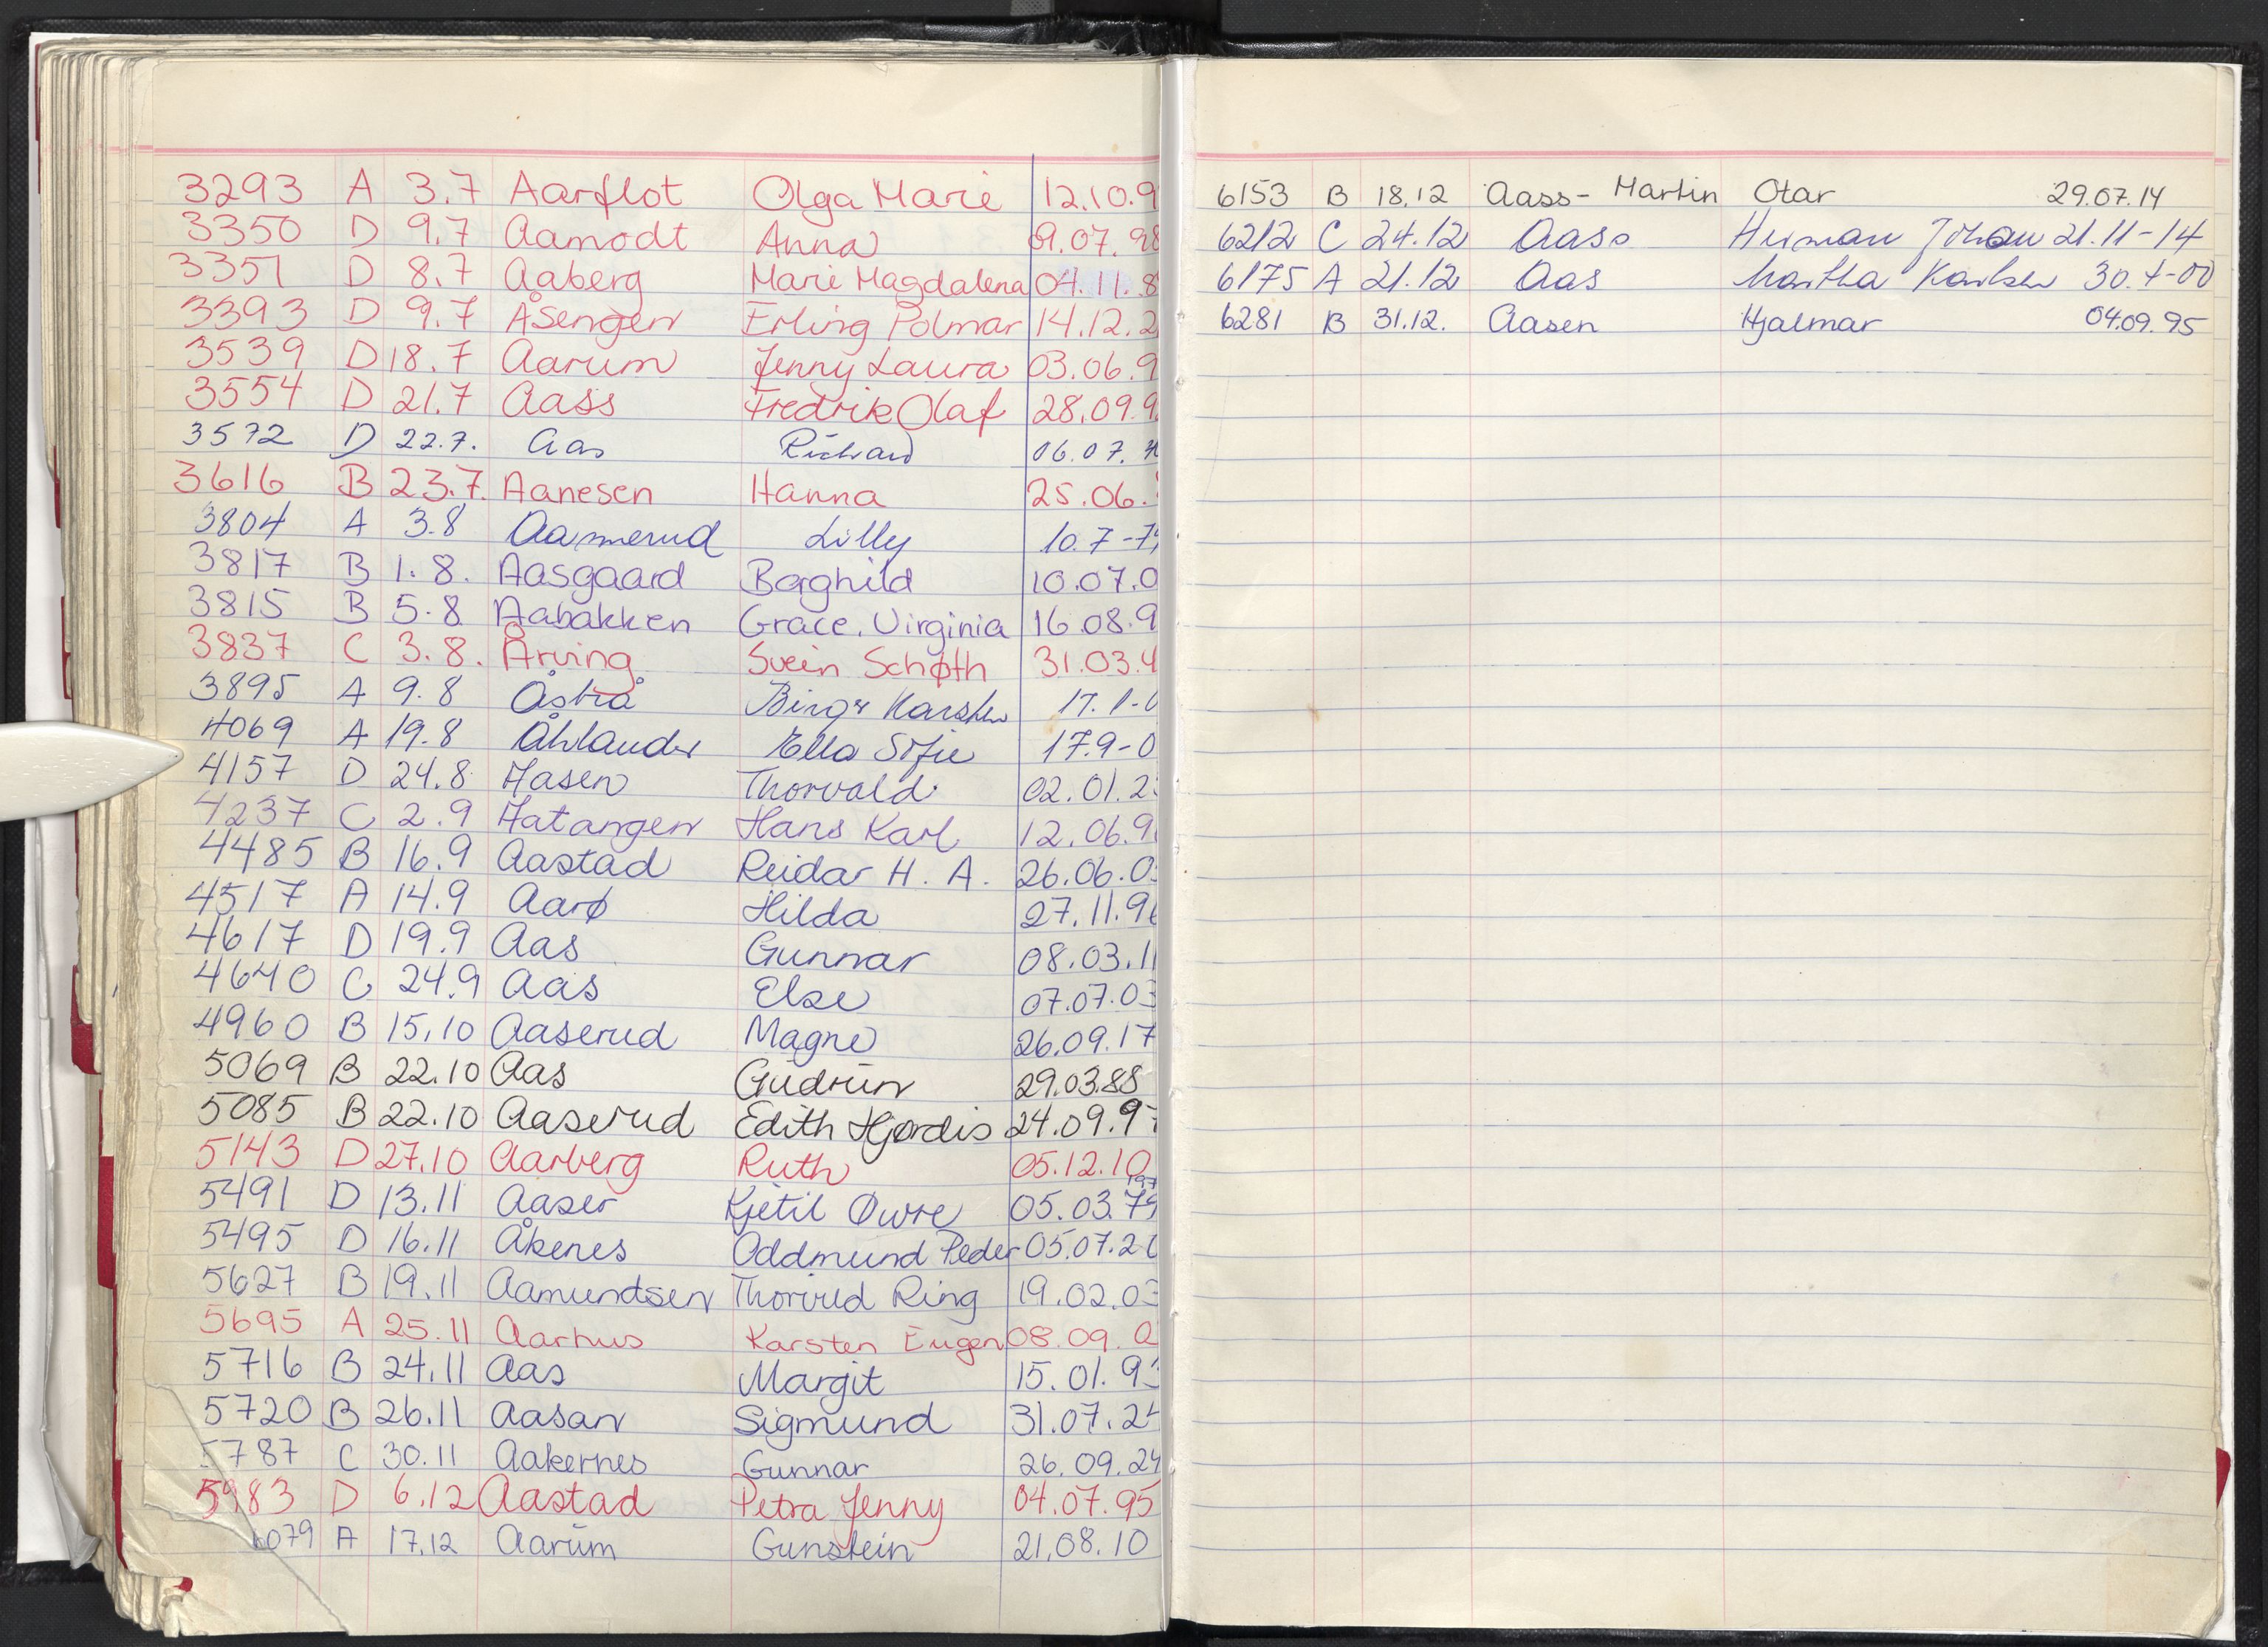 3293 A 3.7 Aarflot Olga Marie 12.10.9
3350 D 9.7 Aamodt Anna 09.07.98
3351 D 8.7 Aaberg Marie Magdalena 04.11.8
3393 D 9.7 Åsengen Erling Polmar 14.12.2
3539 D 18.7 Aarum Jenny Laura 03.06.9
3554 D 21.7 Aass Fredrik Olaf 28.09.9
3572 D 22.7. Aas Richard 06.07.
3616 B 23.7. Aanesen Hanna 25.06.
3804 A 3.8 Aamerud Lilly 10.7-7
3817 B 1.8. Aasgaard Borghild 10.07.0
3815 B 5.8 Aabakken Grace. Virginia 16.08.9
3837 C 3.8. Årving Svein Schøth 31.03.4
3895 A 9.8 Åstrå Birger Karsten 17.1-0
4069 A 19.8 Åhlander Ella Sofie 17.9-0
4157 D 24.8 Aasen Thorvald 02.01.2
4237 C 2.9 Aatangen Hans Karl 12.06.9
4485 B 16.9 Aastad Reidar H. A. 26.06.0
4517 A 14.9 Aarø Hilda 27.11.9
4617 D 19.9 Aas Gunnar 08.03.11
4640 C 24.9 Aas Else 07.07.03
4960 B 15.10 Aaserud Magne 26.09.17
5069 B 22.10 Aas Gudrun 29.03.88
5085 B 22.10 Aaserud Edith Hjørdis 24.09.97
5143 D 27.10 Aarberg Ruth 05.12.10
5491 D 13.11 Aaser Kjetil Øwre 05.03.79
5495 D 16.11 Åkenes Oddmund Peder 05.07.2
5627 B 19.11 Aamundsen Thorvild Ring 19.02.03
5695 A 25.11 Aarhus Karsten Eugen 08.09.0
5716 B 24.11 Aas Margit 15.01.9
5720 B 26.11 Aasan Sigmund 31.07.2
5787 C 30.11 Aakernes Gunnar 26.09.24
5983 D 6.12 Aastad Petra Jenny 04.07.95
6079 A 17.12 Aarum Gunstein 21.08.10
6153 B 18.12 Aass- Martin Otar 29.07.14
6212 C 24.12 Aass Herman Johan 21.11-14
6175 A 21.12 Aas Martha Karlsen 30.4-00
6281 B 31.12. Aasen Hjalmar 04.09.95